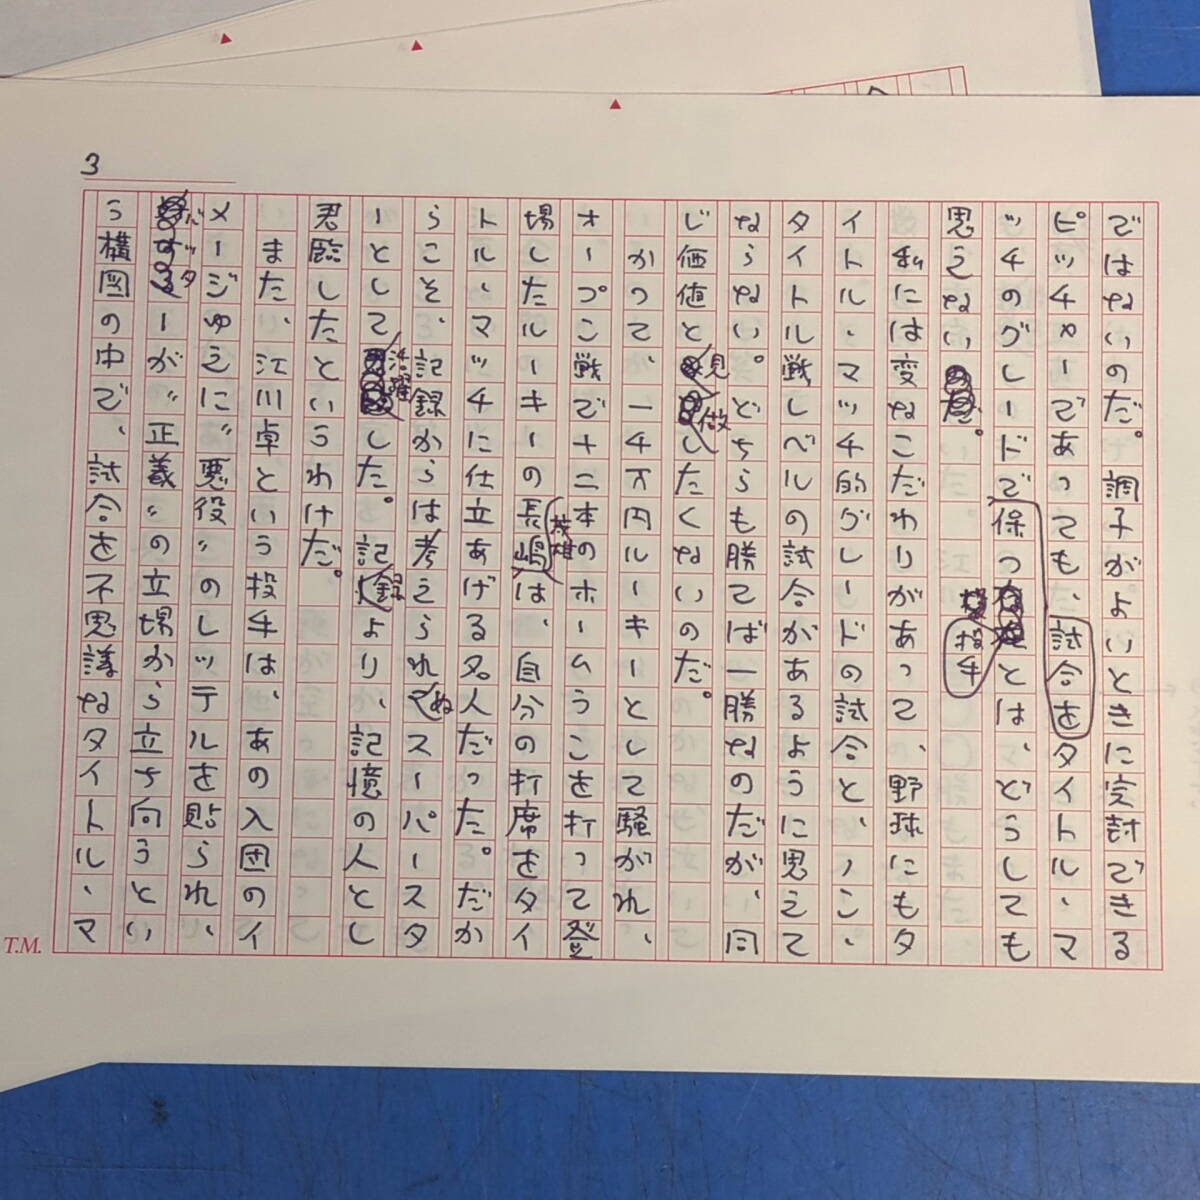 3
ではないのだ。調子がよいときに完封できる
ピッチャーであっても、試合をタイトル、マ
ッチのグレードで保つ投手とは、どうしても
思えない。
私には変なこだわりがあって、野球にもタ
イトル、マッチ的グレードの試合と、ノン、
タイトル戦レベルの試合があるように思えて
ならない。どちらも勝てば一勝なのだが、同
じ価値と見做したくないのだ。
かつて、一千万円ルーキーとして騒がれ、
オープン戦で十二本のホームランを打って登
場したルーキーの長嶋茂雄は、自分の打席をタイ
トル、マッチに仕立あげる名人だった。だか
らこそ、記録からは考えられぬスーパースタ
ーとして活躍した。記録より、記憶の人とし
君臨したというわけだ。
また、江川卓という投手は、あの入団のイ
メージゆえに〝悪役〟のレッテルを貼られ、
バッターが〝正義〟の立場から立ち向うとい
う構図の中で、試合を不思議なタイトル、マ
T.M.